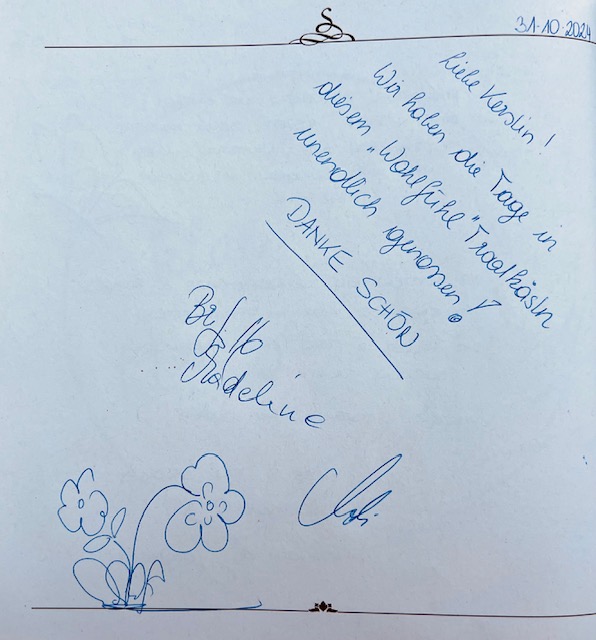 31·10·2024
Liebe Kerstin!
Wir haben die Tage in
diesem „Wohlfühl" Troatkåstn
unendlich genossen!
DANKE SCHÖN
Madeline